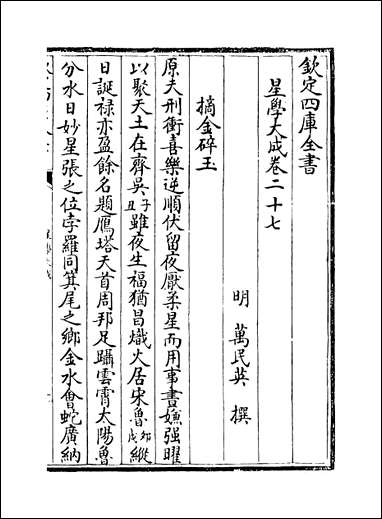 欽定四庫全書
星學大成卷二十七
明 萬民英 撰
摘金碎玉
原夫刑衝喜樂逆順伏留夜厭柔星而用事書嫌强曜
以聚天土在齊吳子丑雖夜生福猶昌熾火居宋魯卯戌縱
日誕禄亦盈餘名題鴈塔天首周邦足躡雲霄太陽魯
分水日妙星張之位孛羅同箕尾之鄉金水會蛇廣納